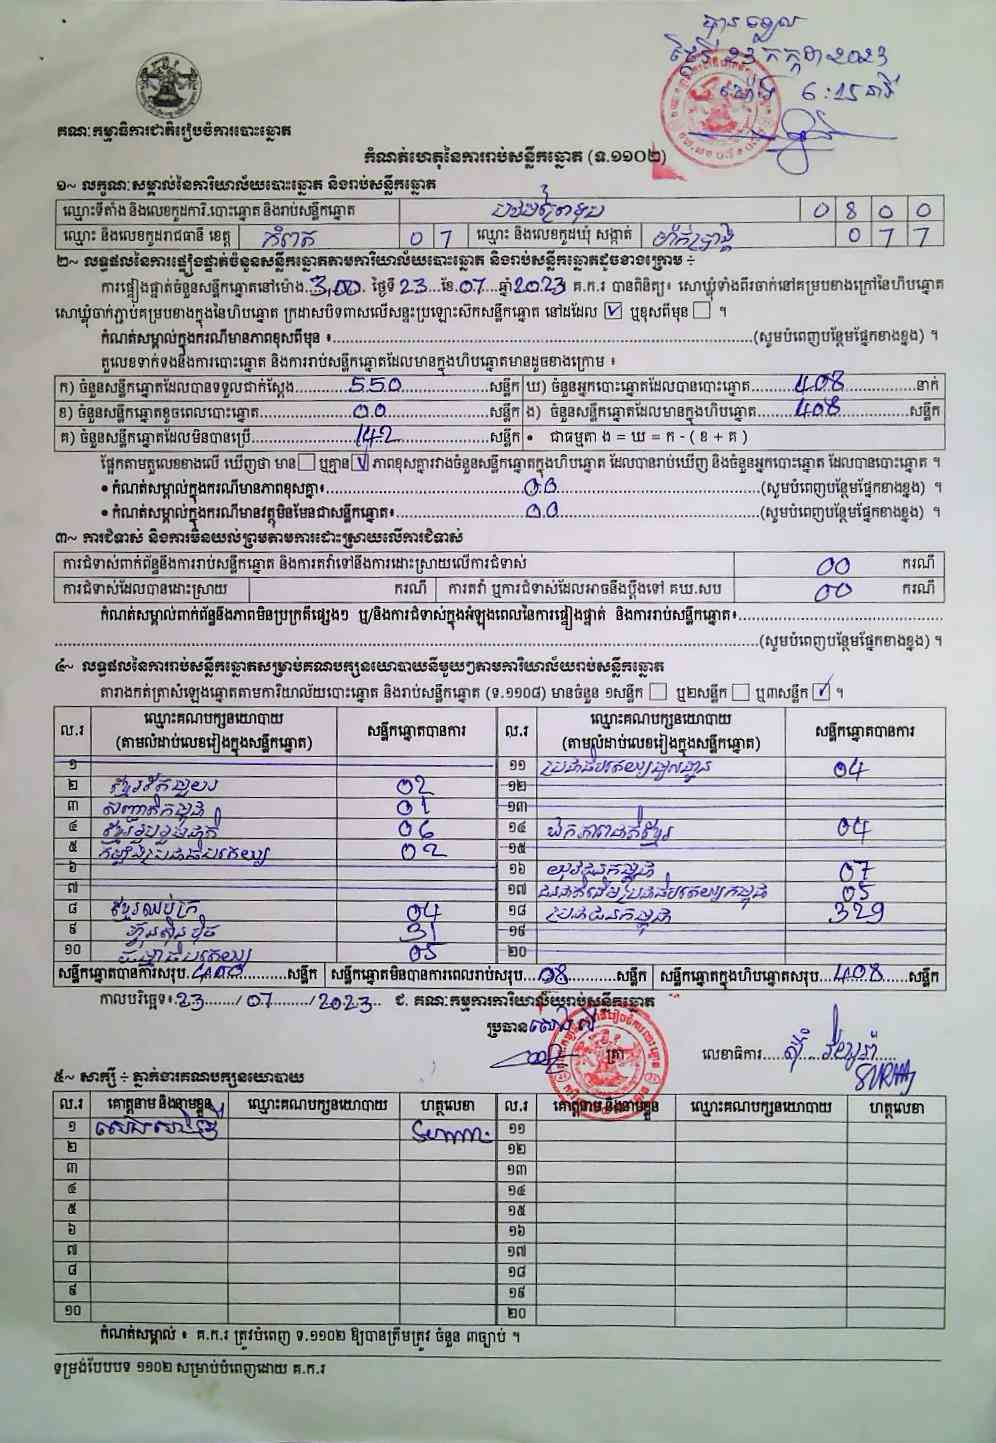 បានឃើញ
ថ្ងៃទី 23 កក្កដា 2023
ម៉ោង 6:15 នាទី
គណៈកម្មាធិការជាតិរៀបចំការបោះឆ្នោត
កំណត់ហេតុនៃការរាប់សន្លឹកឆ្នោត (ទ.១១០២)
១~ លក្ខណៈសម្គាល់នៃការិយាល័យបោះឆ្នោត និងរាប់សន្លឹកឆ្នោត
ឈ្មោះទីតាំង និងលេខកូដការិ.បោះឆ្នោត និងរាប់សន្លឹកឆ្នោត 0 8 0 0
ឈ្មោះ និងលេខកូដរាជធានី ខេត្ត កំពត 0 7 ឈ្មោះ និងលេខកូដឃុំ សង្កាត់ ម៉ាក់ប្រាង្គ 0 7 7
២~ លទ្ធផលនៃការផ្ទៀងផ្ទាត់ចំនួនសន្លឹកឆ្នោតតាមការិយាល័យបោះឆ្នោត និងរាប់សន្លឹកឆ្នោតដូចខាងក្រោម ÷
ការផ្ទៀងផ្ទាត់ចំនួនសន្លឹកឆ្នោតនៅម៉ោង..3,00.. ថ្ងៃទី 23...ខែ.07....ឆ្នាំ 2023 គ.ក.រ បានពិនិត្យ៖ សោឃ្លុំទាំងពីរចាក់នៅគម្របខាងក្រៅនៃហិបឆ្នោត
សោឃ្លុំចាក់ភ្ជាប់គម្របខាងក្នុងនៃហិបឆ្នោត ក្រដាសបិទពាសលើសន្ទះប្រឡោះស៊កសន្លឹកឆ្នោត នៅដដែល ☑ ឬខុសពីមុន ☐ ។
កំណត់សម្គាល់ក្នុងករណីមានភាពខុសពីមុន ៖...(សូមបំពេញបន្ថែមផ្នែកខាងខ្នង) ។
តួលេខទាក់ទងនឹងការបោះឆ្នោត និងការរាប់សន្លឹកឆ្នោតដែលមានក្នុងហិបឆ្នោតមានដូចខាងក្រោម ៖
ក) ចំនួនសន្លឹកឆ្នោតដែលបានទទួលជាក់ស្តែង...550...សន្លឹក ឃ) ចំនួនអ្នកបោះឆ្នោតដែលបានបោះឆ្នោត...408...នាក់
ខ) ចំនួនសន្លឹកឆ្នោតខូចពេលបោះឆ្នោត...00...សន្លឹក ង) ចំនួនសន្លឹកឆ្នោតដែលមានក្នុងហិបឆ្នោត...408...សន្លឹក
គ) ចំនួនសន្លឹកឆ្នោតដែលមិនបានប្រើ...142...សន្លឹក • ជាធម្មតា ង = ឃ = ក - ( ខ + គ )
ផ្អែកតាមតួលេខខាងលើ ឃើញថា មាន ☐ ឬគ្មាន ☑ ភាពខុសគ្នារវាងចំនួនសន្លឹកឆ្នោតក្នុងហិបឆ្នោត ដែលបានរាប់ឃើញ និងចំនួនអ្នកបោះឆ្នោត ដែលបានបោះឆ្នោត ។
• កំណត់សម្គាល់ក្នុងករណីមានភាពខុសគ្នា៖...00...(សូមបំពេញបន្ថែមផ្នែកខាងខ្នង) ។
• កំណត់សម្គាល់ក្នុងករណីមានវត្ថុមិនមែនជាសន្លឹកឆ្នោត៖...00...(សូមបំពេញបន្ថែមផ្នែកខាងខ្នង) ។
៣~ ការជំទាស់ និងការមិនយល់ព្រមតាមការដោះស្រាយលើការជំទាស់
ការជំទាស់ពាក់ព័ន្ធនឹងការរាប់សន្លឹកឆ្នោត និងការតវ៉ាទៅនឹងការដោះស្រាយលើការជំទាស់ 00 ករណី
ការជំទាស់ដែលបានដោះស្រាយ ករណី ការតវ៉ា ឬការជំទាស់ដែលអាចនឹងប្តឹងទៅ គឃ.សប 00 ករណី
កំណត់សម្គាល់ពាក់ព័ន្ធនឹងភាពមិនប្រក្រតីផ្សេងៗ ឬ/និងការជំទាស់ក្នុងអំឡុងពេលនៃការផ្ទៀងផ្ទាត់ និងការរាប់សន្លឹកឆ្នោត៖...
...(សូមបំពេញបន្ថែមផ្នែកខាងខ្នង) ។
៤~ លទ្ធផលនៃការរាប់សន្លឹកឆ្នោតសម្រាប់គណបក្សនយោបាយនីមួយៗតាមការិយាល័យរាប់សន្លឹកឆ្នោត
តារាងកត់ត្រាសំឡេងឆ្នោតតាមការិយាល័យបោះឆ្នោត និងរាប់សន្លឹកឆ្នោត (ទ.១១០៨) មានចំនួន ១សន្លឹក ☐ ឬ២សន្លឹក ☐ ឬ៣សន្លឹក ☑ ។
ល.រ ឈ្មោះគណបក្សនយោបាយ (តាមលំដាប់លេខរៀងក្នុងសន្លឹកឆ្នោត) សន្លឹកឆ្នោតបានការ ល.រ ឈ្មោះគណបក្សនយោបាយ (តាមលំដាប់លេខរៀងក្នុងសន្លឹកឆ្នោត) សន្លឹកឆ្នោតបានការ
១ ១១ ប្រជាធិបតេយ្យមូលដ្ឋាន 04
២ ខ្មែររីកចម្រើន 02 ១២
៣ សញ្ជាតិកម្ពុជា 01 ១៣
៤ ខ្មែររួបរួមជាតិ 06 ១៤ ឯកភាពជាតិខ្មែរ 04
៥ កម្លាំងប្រជាធិបតេយ្យ 02 ១៥
៦ ១៦ យុវជនកម្ពុជា 07
៧ ១៧ ជនជាតិដើមប្រជាធិបតេយ្យកម្ពុជា 05
៨ ខ្មែរឈប់ក្រ 04 ១៨ ប្រជាជនកម្ពុជា 329
៩ ហ្វ៊ុនស៊ិនប៉ិច 31 ១៩
១០ ធម្មាធិបតេយ្យ 05 ២០
សន្លឹកឆ្នោតបានការសរុប.400...សន្លឹក សន្លឹកឆ្នោតមិនបានការពេលរាប់សរុប...08...សន្លឹក សន្លឹកឆ្នោតក្នុងហិបឆ្នោតសរុប...408...សន្លឹក
កាលបរិច្ឆេទ៖ 23 / 07 / 2023 ជ. គណៈកម្មការការិយាល័យរាប់សន្លឹកឆ្នោត
ប្រធាន
ត្រា លេខាធិការ
៥~ សាក្សី ÷ ភ្នាក់ងារគណបក្សនយោបាយ
ល.រ គោត្តនាម និងនាមខ្លួន ឈ្មោះគណបក្សនយោបាយ ហត្ថលេខា ល.រ គោត្តនាម និងនាមខ្លួន ឈ្មោះគណបក្សនយោបាយ ហត្ថលេខា
១ ១១
២ ១២
៣ ១៣
៤ ១៤
៥ ១៥
៦ ១៦
៧ ១៧
៨ ១៨
៩ ១៩
១០ ២០
កំណត់សម្គាល់ ៖ គ.ក.រ ត្រូវបំពេញ ទ.១១០២ ឱ្យបានត្រឹមត្រូវ ចំនួន ៣ច្បាប់ ។
ទម្រង់បែបបទ ១១០២ សម្រាប់បំពេញដោយ គ.ក.រ